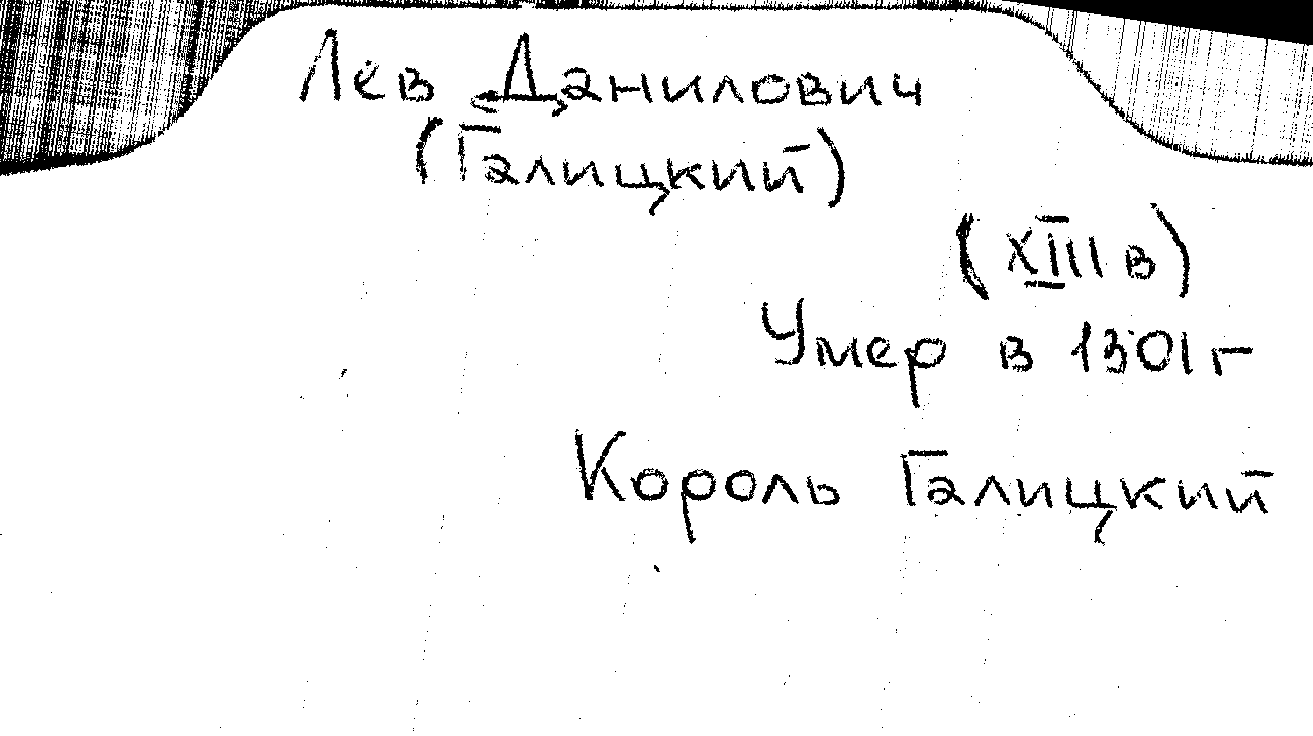 Лев Данилович
(Галицкий)
(XIII в)
Умер в 1301 г
Король Галицкий